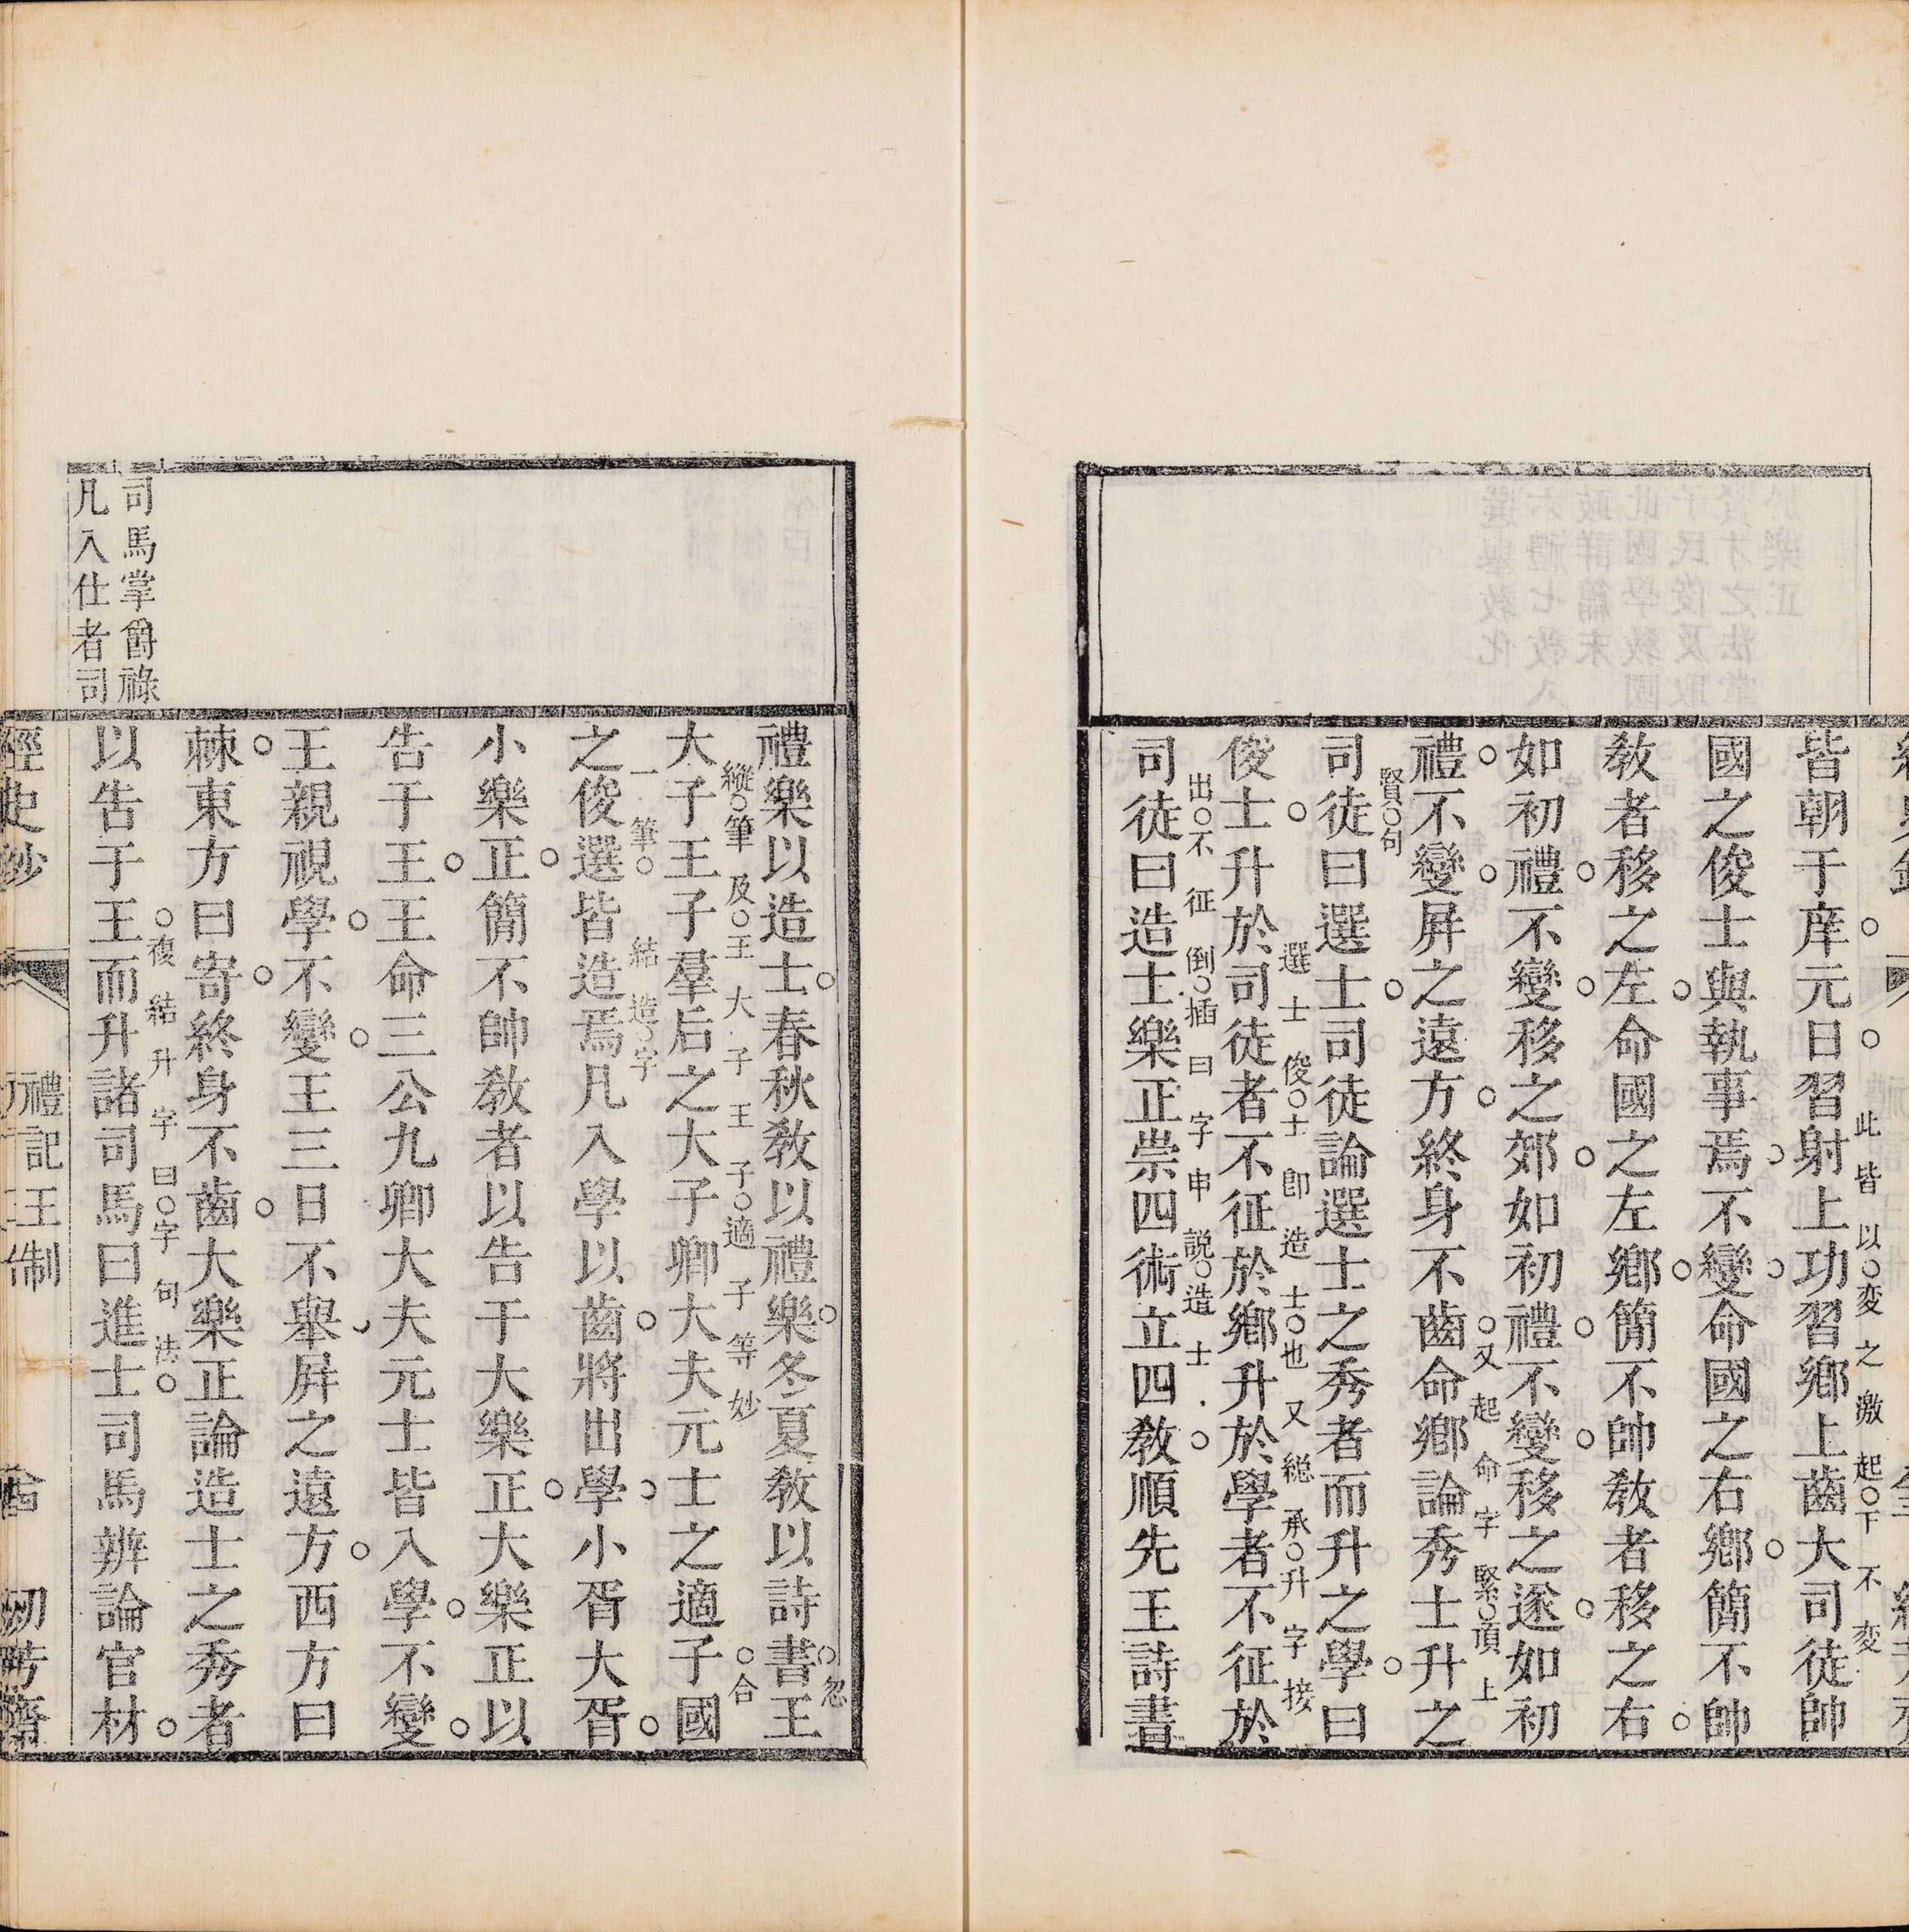 皆朝于庠元日習射上功習鄉上齒大司徒帥
此皆以變之激起下不変
國之俊士與執事焉不變命國之右鄉簡不帥
敎者移之左命國之左鄉簡不帥敎者移之右
如初禮不變移之郊如初禮不變移之遂如初
禮不變屛之遠方終身不齒命鄉論秀士升之
又起命字緊頂上
司徒曰選士司徒論選士之秀者而升之學曰
賢句
俊士升於司徒者不征於鄉升於學者不征於
選士俊士卽造士也又總承升字接
司徒曰造士樂正崇四術立四敎順先王詩書
出不征倒插曰字申説造士
禮樂以造士春秋敎以禮樂冬夏敎以詩書王
忽
大子王子羣后之大子卿大夫元士之適子國
縱筆及王大子王子適子等妙合
之俊選皆造焉凡入學以齒將出學小胥大胥
一筆結造字
小樂正簡不帥敎者以告于大樂正大樂正以
告于王王命三公九卿大夫元士皆入學不變
王親視學不變王三日不舉屛之遠方西方曰
棘東方曰寄終身不齒大樂正論造士之秀者
以告于王而升諸司馬曰進士司馬辨論官材
複結升字曰字句法
司馬掌爵祿
凡入仕者司
經史鈔
禮記 王制